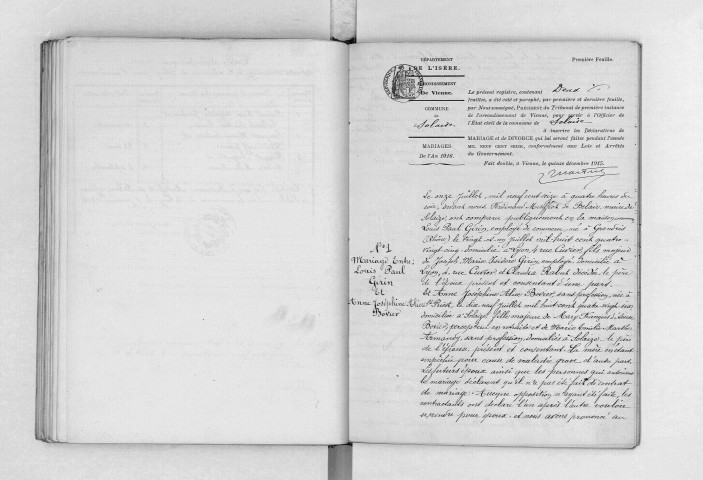 DÉPARTEMENT
DE L'ISÈRE.
ARRONDISSEMENT
De Vienne.
COMMUNE
de
Solaise
MARIAGES
De l'An 1916.
Première Feuille.
Le présent registre, contenant Deux
feuilles, a été coté et paraphé, par première et dernière feuille,
par Nous soussigné, Président du Tribunal de première instance
de l'arrondissement de Vienne, pour servir à l'Officier de
l'État civil de la commune de Solaise
à inscrire les Déclarations de
MARIAGE et de DIVORCE qui lui seront faites pendant l'année
MIL NEUF CENT SEIZE, conformément aux Lois et Arrêtés
du Gouvernement.
Fait double, à Vienne, le quinze décembre 1915.
N° 1
Mariage Entre
Louis Paul
Girin
Et
Anne Joséphine Alice
Bovier
Le onze Juillet, mil neuf cent seize à quatre heures du
soir, devant nous Ferdinand de Belair, maire de
Solaize, ont comparu publiquement en la maison commune
Louis Paul Girin, employé de commerce, né à
(Rhône) le vingt et un Juillet mil huit cent quatre
vingt cinq domicilié à Lyon, rue Cuvier, fils majeur
de Joseph Marie Isidore Girin, employé, domicilié à
Lyon, rue Cuvier et Claudia décédée, le père
de l'époux présent et consentant d'une part.
Et Anne Joséphine Alice Bovier, sans profession, née à
St Priest, le dix neuf Juillet mil huit cent quatre vingt six
domiciliée à Solaize, fille majeure de Mary François
Bovier, percepteur en retraite et de Marie Emilie
Armandy, sans profession, domiciliés à Solaize, le père
de l'épouse, présent et consentant. La mère n'étant
empêchée pour cause de maladie grave et d'autre part.
Les futurs époux ainsi que les personnes qui autorisent
le mariage déclarent qu'il n'a pas été fait de contrat
de mariage. Aucune opposition n'ayant été faite, les
contractants ont déclaré l'un après l'autre vouloir
se prendre pour époux et nous avons prononcé au